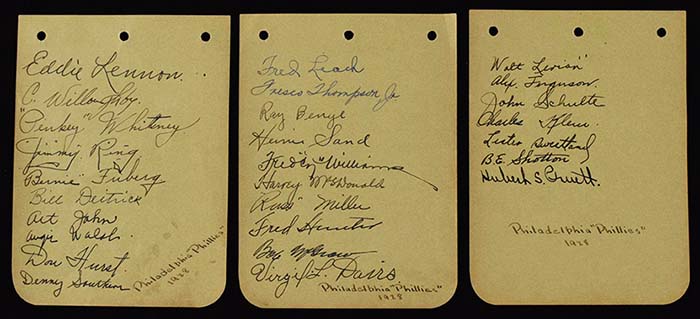 Eddie Lennon
C. Willoughby
"Pinkey" Whitney
Jimmy Ring
"Bernie" Friberg
Bill Deitrick
Art John
Augie Walsh
Don Hurst
Denny Southern
Philadelphia "Phillies"
1928
Fred Leach
Fresco Thompson Jr
Ray Benge
Heinie Sand
Fred "Cy" Williams
Harvey McDonald
"Russ" Miller
Fred
Bob McGraw
Virgil L. Davis
Philadelphia "Phillies"
1928
Walt Lerian
Alex Ferguson
John Schulte
Charles Klein
Lester Sweetland
B.E. Shotton
Hubert S. Pruett.
Philadelphia "Phillies"
1928